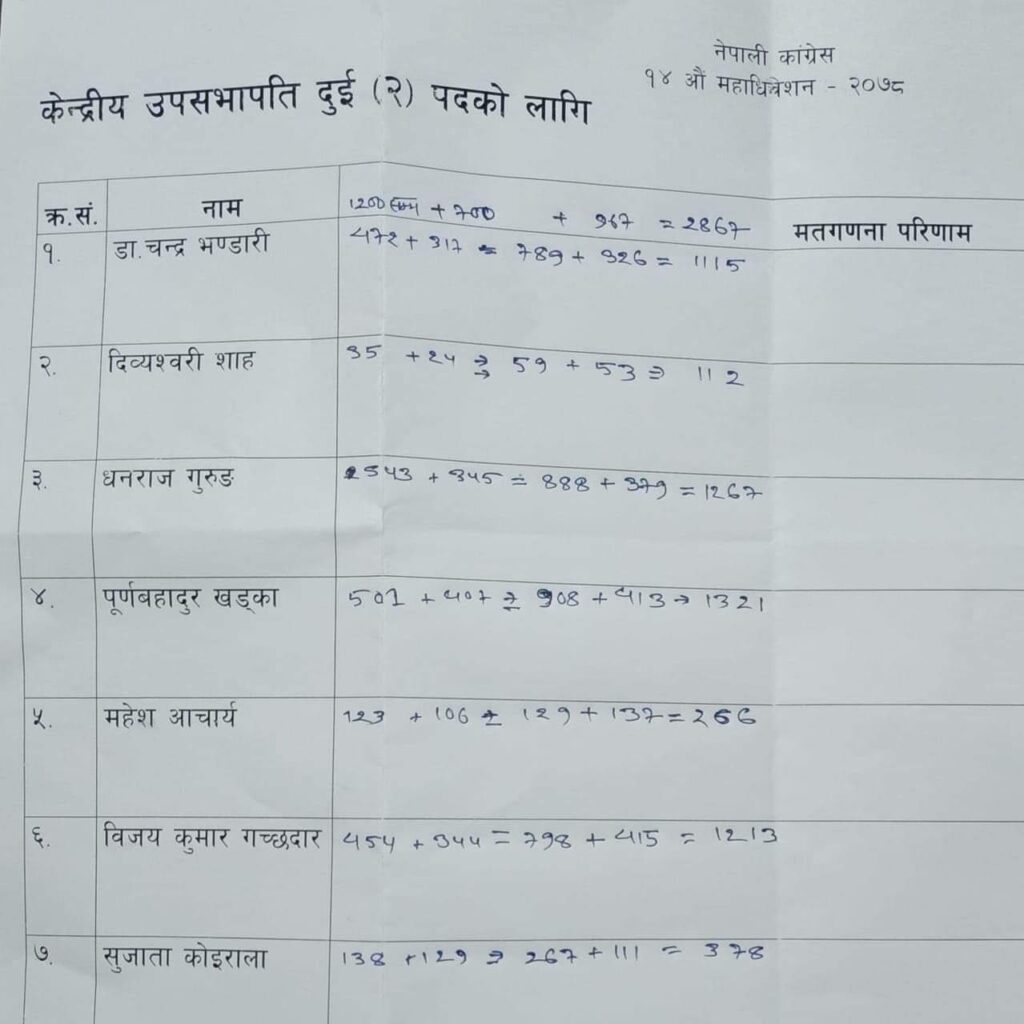 नेपाली कांग्रेस
१४ औं महाधिवेशन - २०७८
केन्द्रीय उपसभापति दुई (२) पदको लागि
क्र.सं. नाम 1200 सम्म + 700 + 967 = 2867 मतगणना परिणाम
१. डा.चन्द्र भण्डारी 472 + 317 = 789 + 326 = 1115
२. दिव्यश्वरी शाह 35 + 24 ⇒ 59 + 53 ⇒ 112
३. धनराज गुरुङ 543 + 345 = 888 + 379 = 1267
४. पूर्णबहादुर खड्का 501 + 407 = 908 + 413 → 1321
५. महेश आचार्य 123 + 106 = 129 + 137 = 266
६. विजय कुमार गच्छदार 454 + 344 = 798 + 415 = 1213
७. सुजाता कोइराला 138 + 129 ⇒ 267 + 111 = 378